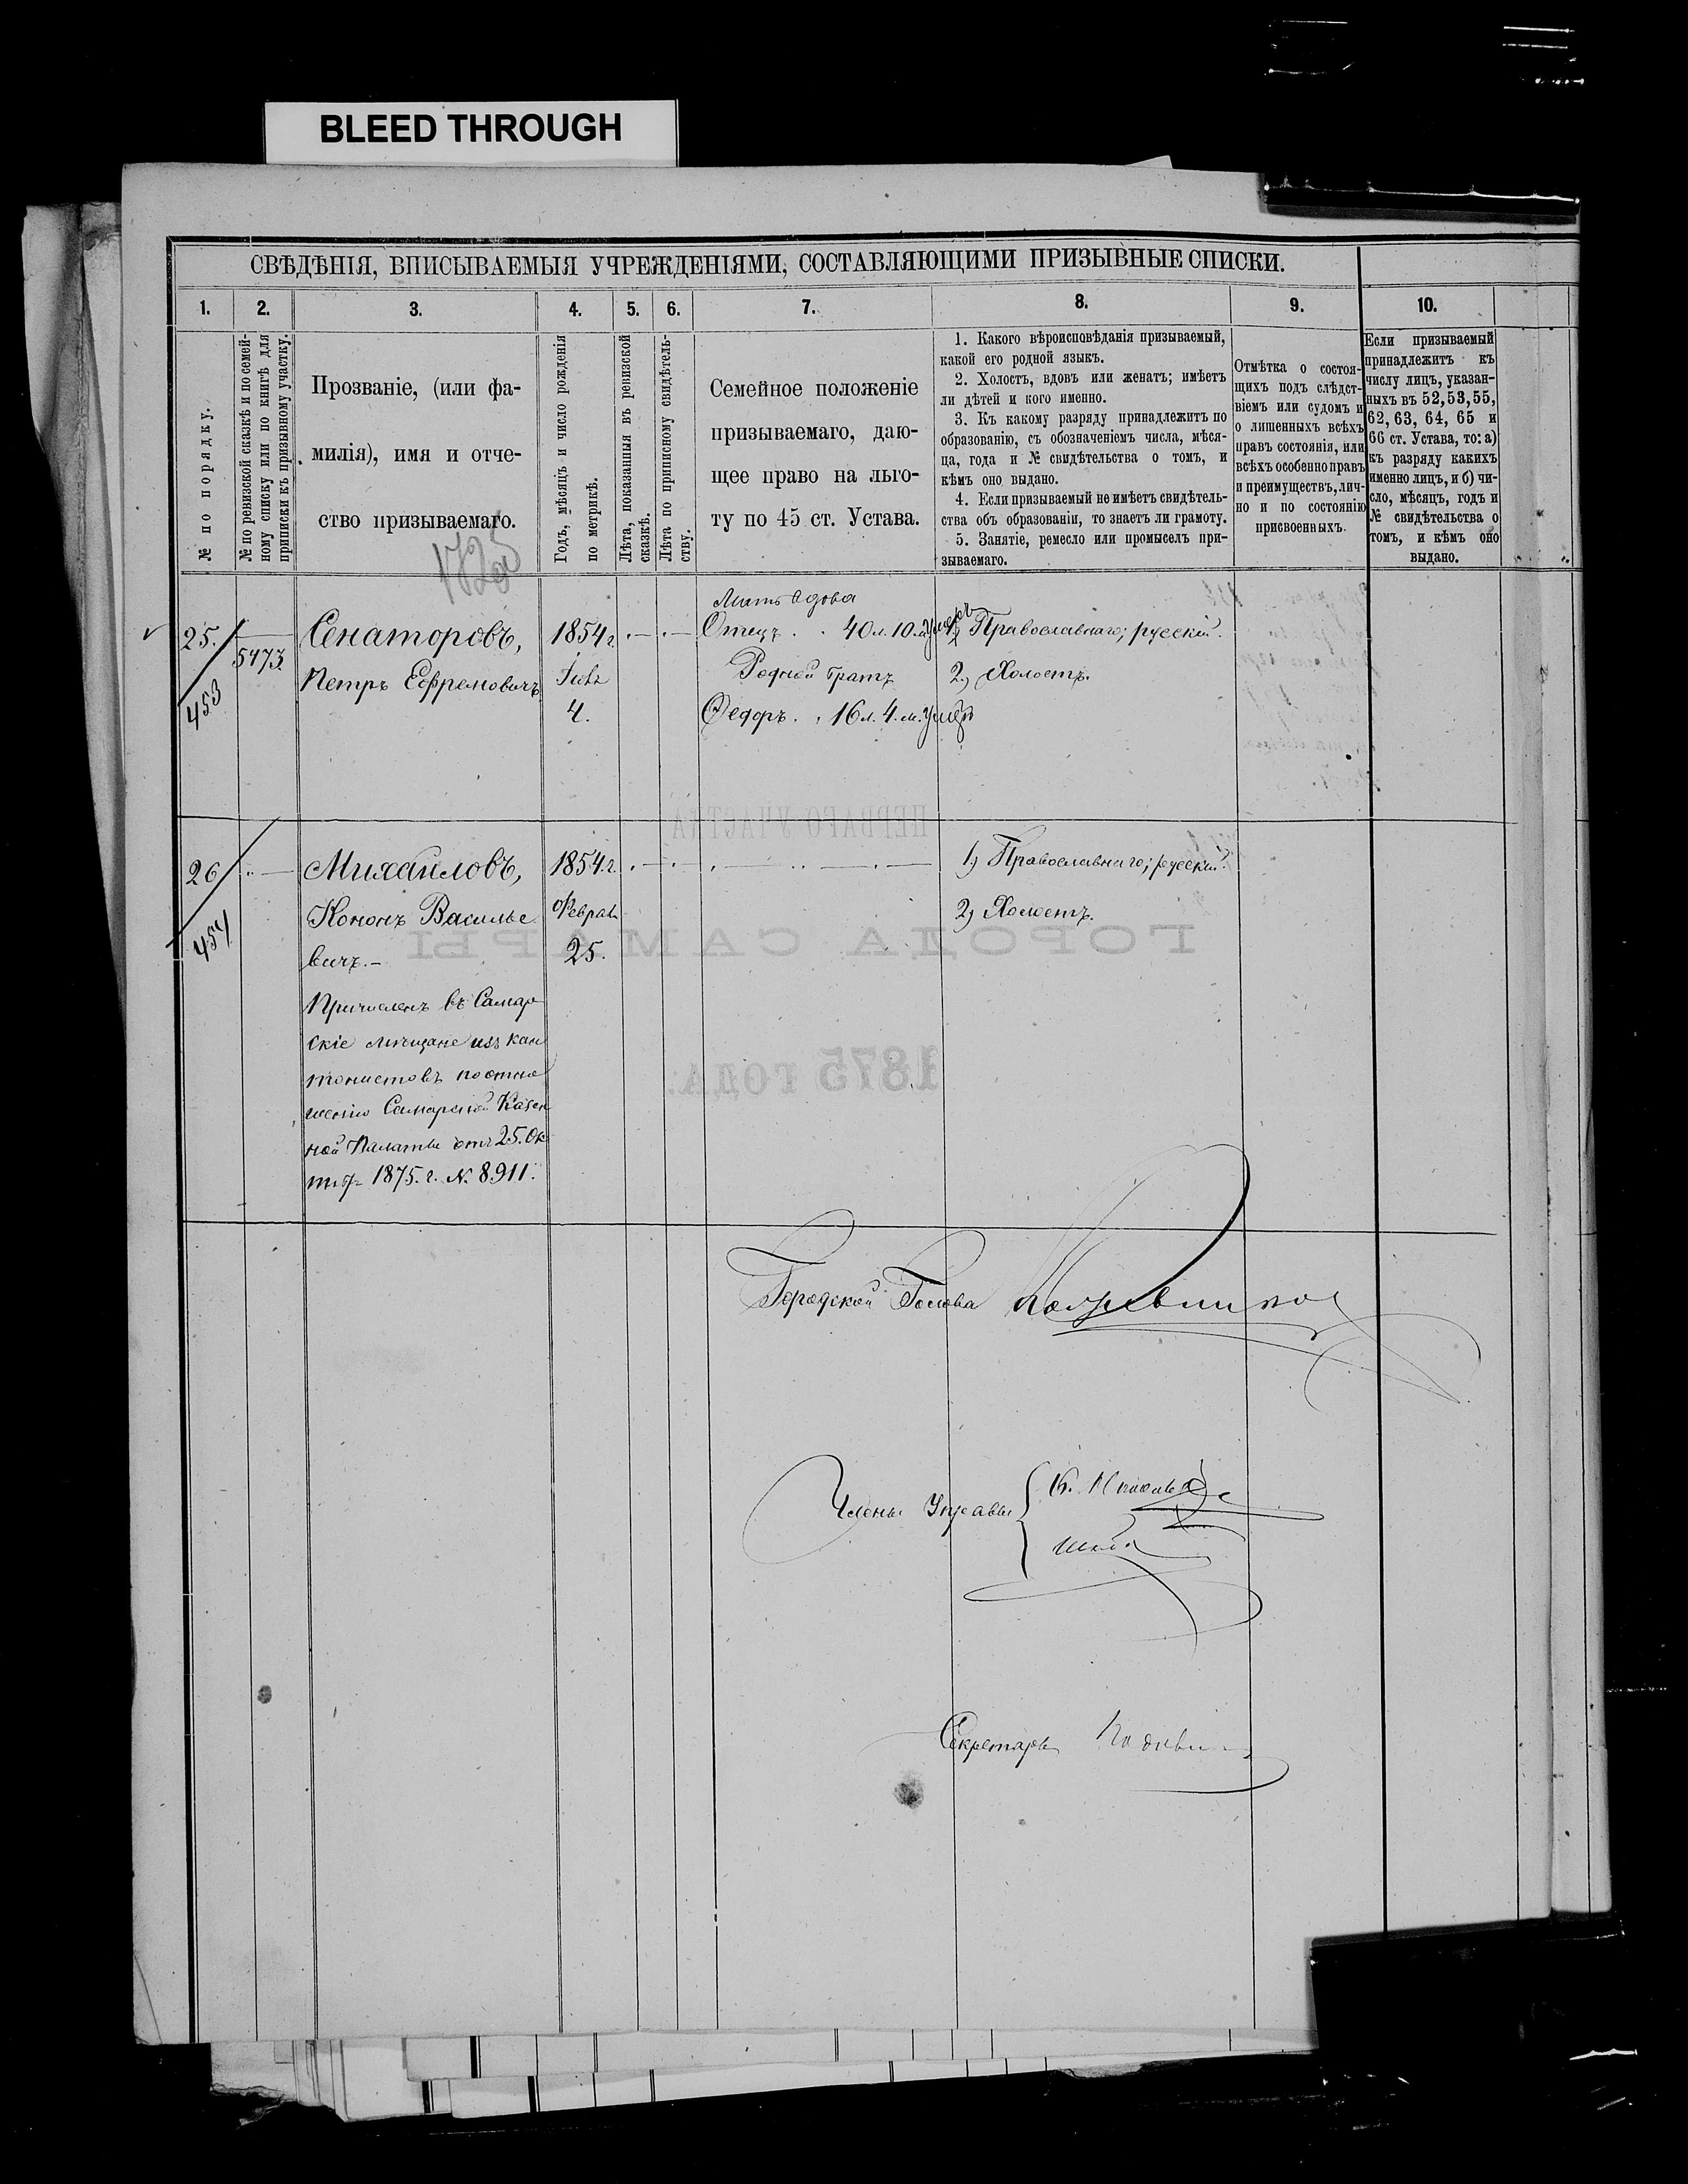 BLEED THROUGH
СВѢДѢНІЯ, ВПИСЫВАЕМЫЯ УЧРЕЖДЕНІЯМИ, СОСТАВЛЯЮЩИМИ ПРИЗЫВНЫЕ СПИСКИ.
1. 2. 3. 4. 5. 6. 7. 8. 9. 10.
№ по порядку.
№ по ревизской сказкѣ и по семей-
ному списку или по книгѣ для
приписки къ призывному участку.
Прозваніе, (или фа-
милія), имя и отче-
ство призываемаго.
Годъ, мѣсяцъ и число рожденія
по метрикѣ.
Лѣта, показанныя въ ревизской
сказкѣ.
Лѣта по приписному свидѣтель-
ству.
Семейное положеніе
призываемаго, даю-
щее право на льго-
ту по 45 ст. Устава.
1. Какого вѣроисповѣданія призываемый,
какой его родной языкъ.
2. Холостъ, вдовъ или женатъ; имѣетъ
ли дѣтей и кого именно.
3. Къ какому разряду принадлежитъ по
образованію, съ обозначеніемъ числа, мѣся-
ца, года и № свидѣтельства о томъ, и
кѣмъ оно выдано.
4. Если призываемый не имѣетъ свидѣтель-
ства объ образованіи, то знаетъ ли грамоту.
5. Занятіе, ремесло или промыселъ при-
зываемаго.
Отмѣтка о состоя-
щихъ подъ слѣдст-
віемъ или судомъ и
о лишенныхъ всѣхъ
правъ состоянія, или
всѣхъ особенно правъ
и преимуществъ, лич-
но и по состоянію
присвоенныхъ.
Если призываемый
принадлежитъ къ
числу лицъ, указан-
ныхъ въ 52, 53, 55,
62, 63, 64, 65 и
66 ст. Устава, то: а)
къ разряду какихъ
именно лицъ, и б) чи-
сло, мѣсяцъ, годъ и
№ свидѣтельства о
томъ, и кѣмъ оно
выдано.
25.
453
5473
Сенаторовъ,
Петръ Ефремовичъ
1854 г.
4.
Мать вдова
Отецъ . . 40 л. 10. м. умеръ
Родной братъ
Федоръ . . 16 л. 4. м. умеръ
1) Православнаго; русскій.
2.) Холостъ.
26
454
Михаиловъ,
Кононъ Василье
вичъ.-
Причисленъ въ Самар
скіе мѣщане изъ кан
тонистовъ по отно
шенію Самарской Казен
ной Палаты отъ 25. Ок
тяб- 1875. г. № 8911.
1854. г.
Феврал
25.
1) Православнаго; русскій.
2) Холостъ.
ПЕРВАГО УЧАСТКА
ГОРОДА САМАРЫ
1875 ГОДА.
Городской Голова
Члены Управы
Секретарь